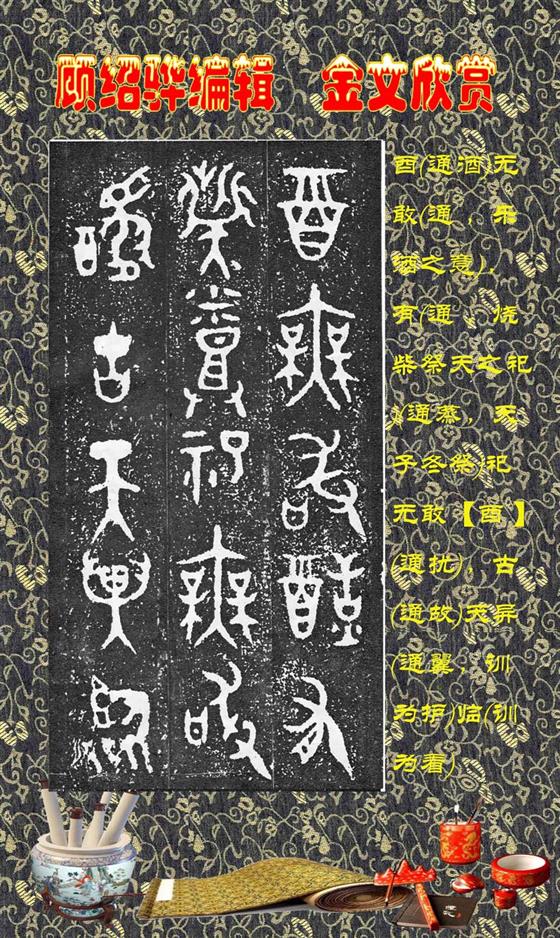 顾绍骅编辑 金文欣赏
酉無敢有
祀無敢
古天異臨
酉(通酒)无
敢(通，乐
酒之意)，
有(通，烧
柴祭天之祀
)(通蒸，天
子冬祭)祀
无敢【酉】
(通扰)，古
(通故)天异
(通翼，训
为护)临(训
为看)